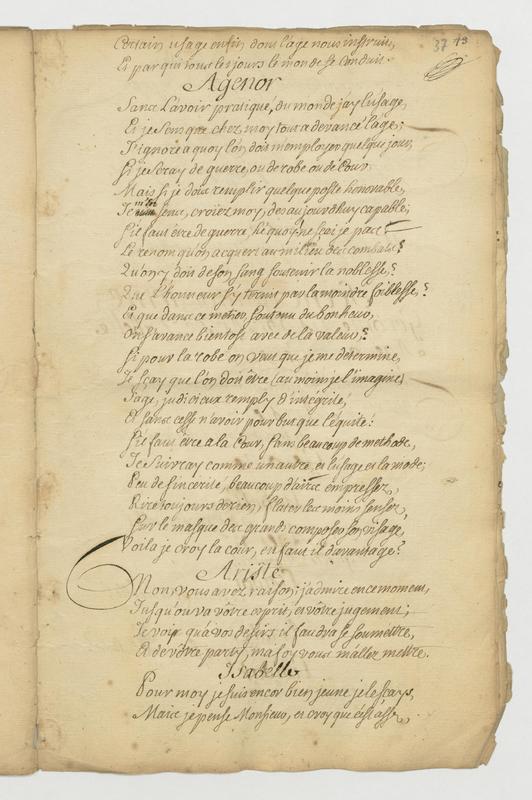 37 43
Certain usage enfin dont l'age nous instruit,
Et par qui tous les jours le monde se conduit.
Agenor
Sans l'avoir pratiqué, du monde j'ay l'usage,
Et je sens que chez moy tout a devancé l'age;
J'ignore a quoy l'on doit m'employer quelque jour,
Si je seray de guerre, ou de robe ou de Cour,
Mais si je dois remplir quelque poste honorable,
Je m'en sens, croiez moy, des aujourd'huy capable;
S'il faut être de guerre, hé quoy, ne sçai je pas
Le renom qu'on acquert au milieu des combats?
Qu'on y doit de son sang soutenir la noblesse,?
Que l'honneur s'y ternit par la moindre foiblesse,?
Et que dans ce metier, soutenu du bonheur,
On s'avance bientost avec de la valeur,?
Si pour la robe on veut que je me determine,
Je sçay que l'on doit être (au moins je l'imagine)
Sage, judicieux remply d'intégrité,
Et sans cesse n'avoir pour but que l'équité:
S'il faut être a la Cour, sans beaucoup de methode,
Je suivray comme un autre, et l'usage et la mode;
Peu de sincerité, beaucoup d'airs empressez,
Rire toujours de rien, flater les moins sensez,
Sur le masque des grands composer son visage,
Voila je croy la cour, en faut il davantage?
Ariste
Non, vous avez raison; j'admire en ce moment,
Jusqu'ou va vôtre esprit, et vôtre jugement;
Je vois qu'a vos desirs il faudra se soumettre,
Et de vôtre party, ma foy vous m'allez mettre.
Isabelle
Pour moy je suis encor bien jeune je le sçays,
Mais je pense Monsieur, et croy que c'est assez,